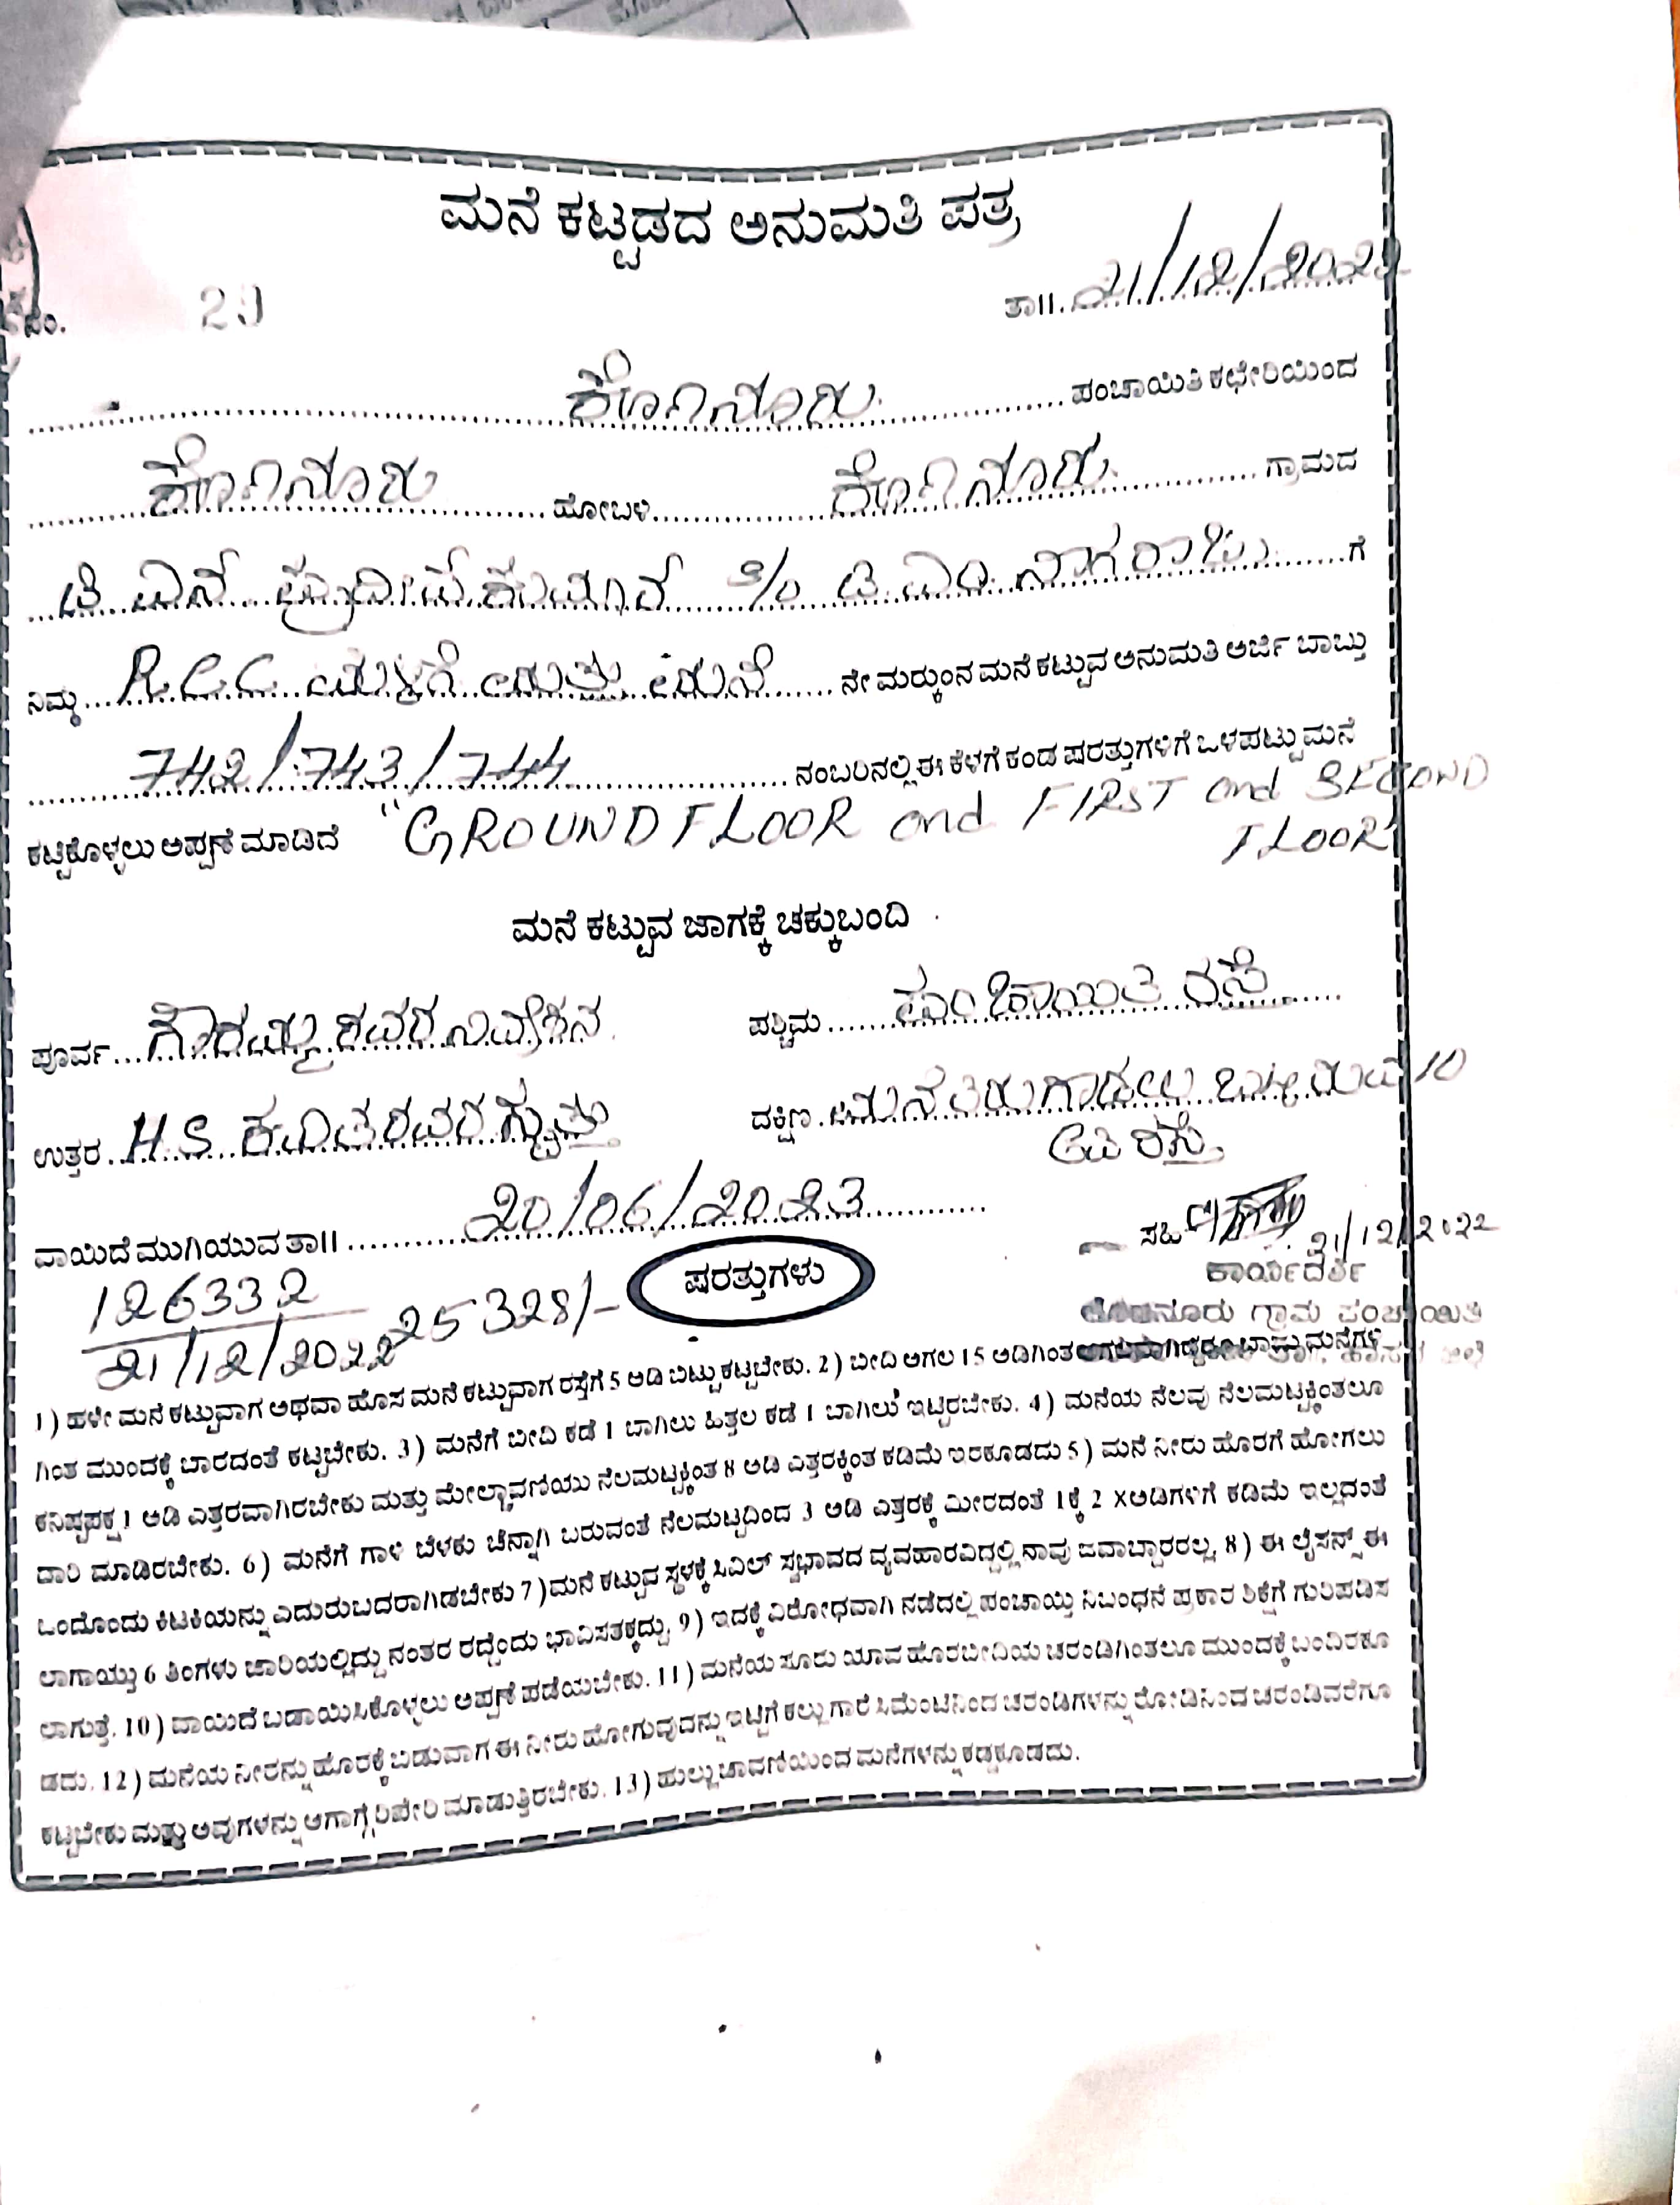 ಮನೆ ಕಟ್ಟಡದ ಅನುಮತಿ ಪತ್ರ
ನಂ. 29 ತಾ॥. 21/12/2022
ಕೊಣನೂರು ಪಂಚಾಯಿತಿ ಕಛೇರಿಯಿಂದ
ಕೊಣನೂರು ಹೋಬಳಿ ಕೊಣನೂರು ಗ್ರಾಮದ
ಟಿ ಎನ್ ಪ್ರದೀಪ್ ಕುಮಾರ್ S/o ಟಿ ಎಂ ನಾಗರಾಜು ಗೆ
ನಿಮ್ಮ R.C.C ಮಳಿಗೆ ಮತ್ತು ಮನೆ ನೇ ಮರ್‍ಕುಂನ ಮನೆ ಕಟ್ಟುವ ಅನುಮತಿ ಅರ್ಜಿ ಬಾಬ್ತು
742/743/744 ನಂಬರಿನಲ್ಲಿ ಈ ಕೆಳಗೆ ಕಂಡ ಷರತ್ತುಗಳಿಗೆ ಒಳಪಟ್ಟು ಮನೆ
ಕಟ್ಟಿಕೊಳ್ಳಲು ಅಪ್ಪಣೆ ಮಾಡಿದೆ "GROUND FLOOR and FIRST and SECOND
FLOOR"
ಮನೆ ಕಟ್ಟುವ ಜಾಗಕ್ಕೆ ಚಕ್ಕುಬಂದಿ
ಪೂರ್ವ ಗೌರಮ್ಮ ರವರ ನಿವೇಶನ ಪಶ್ಚಿಮ ಪಂಚಾಯಿತಿ ರಸ್ತೆ
ಉತ್ತರ H.S. ರವರ ಸ್ವತ್ತು ದಕ್ಷಿಣ ಮನೆ 10
ಅಡಿ ರಸ್ತೆ
ವಾಯಿದೆ ಮುಗಿಯುವ ತಾ॥ 20/06/2023
ಸಹಿ 21/12/2022
ಕಾರ್ಯದರ್ಶಿ
ಕೊಣನೂರು ಗ್ರಾಮ ಪಂಚಾಯಿತಿ
126332
21/12/2022 25328/-
ಷರತ್ತುಗಳು
1) ಹಳೇ ಮನೆ ಕಟ್ಟುವಾಗ ಅಥವಾ ಹೊಸ ಮನೆ ಕಟ್ಟುವಾಗ ರಸ್ತೆಗೆ 5 ಅಡಿ ಬಿಟ್ಟು ಕಟ್ಟಬೇಕು. 2) ಬೀದಿ ಅಗಲ 15 ಅಡಿಗಿಂತ ಮನೆಗಳಿ
ಗಿಂತ ಮುಂದಕ್ಕೆ ಬಾರದಂತೆ ಕಟ್ಟಬೇಕು. 3) ಮನೆಗೆ ಬೀದಿ ಕಡೆ 1 ಬಾಗಿಲು ಹಿತ್ತಲ ಕಡೆ 1 ಬಾಗಿಲು ಇಟ್ಟಿರಬೇಕು. 4) ಮನೆಯ ನೆಲವು ನೆಲಮಟ್ಟಕ್ಕಿಂತಲೂ
ಕನಿಷ್ಟಪಕ್ಷ 1 ಅಡಿ ಎತ್ತರವಾಗಿರಬೇಕು ಮತ್ತು ಮೇಲ್ಛಾವಣಿಯು ನೆಲಮಟ್ಟಕ್ಕಿಂತ 8 ಅಡಿ ಎತ್ತರಕ್ಕಿಂತ ಕಡಿಮೆ ಇರಕೂಡದು 5) ಮನೆ ನೀರು ಹೊರಗೆ ಹೋಗಲು
ದಾರಿ ಮಾಡಿರಬೇಕು. 6) ಮನೆಗೆ ಗಾಳಿ ಬೆಳಕು ಚೆನ್ನಾಗಿ ಬರುವಂತೆ ನೆಲಮಟ್ಟದಿಂದ 3 ಅಡಿ ಎತ್ತರಕ್ಕೆ ಮೀರದಂತೆ 1ಕ್ಕೆ 2 Xಅಡಿಗಳಿಗೆ ಕಡಿಮೆ ಇಲ್ಲದಂತೆ
ಒಂದೊಂದು ಕಿಟಕಿಯನ್ನು ಎದುರುಬದರಾಗಿಡಬೇಕು 7)ಮನೆ ಕಟ್ಟುವ ಸ್ಥಳಕ್ಕೆ ಸಿವಿಲ್ ಸ್ವಭಾವದ ವ್ಯವಹಾರವಿದ್ದಲ್ಲಿ ನಾವು ಜವಾಬ್ದಾರರಲ್ಲ. 8) ಈ ಲೈಸನ್ಸ್ ಈ
ಲಾಗಾಯ್ತು 6 ತಿಂಗಳು ಜಾರಿಯಲ್ಲಿದ್ದು ನಂತರ ರದ್ದೆಂದು ಭಾವಿಸತಕ್ಕದ್ದು. 9) ಇದಕ್ಕೆ ವಿರೋಧವಾಗಿ ನಡೆದಲ್ಲಿ ಪಂಚಾಯ್ತಿ ನಿಬಂಧನೆ ಪ್ರಕಾರ ಶಿಕ್ಷೆಗೆ ಗುರಿಪಡಿಸ
ಲಾಗುತ್ತೆ. 10) ವಾಯಿದೆ ಬಡಾಯಿಸಿಕೊಳ್ಳಲು ಅಪ್ಪಣೆ ಪಡೆಯಬೇಕು. 11) ಮನೆಯ ಸೂರು ಯಾವ ಹೊರಬೀದಿಯ ಚರಂಡಿಗಿಂತಲೂ ಮುಂದಕ್ಕೆ ಬಂದಿರಕೂ
ಡದು. 12) ಮನೆಯ ನೀರನ್ನು ಹೊರಕ್ಕೆ ಬಿಡುವಾಗ ಈ ನೀರು ಹೋಗುವುದನ್ನು ಇಟ್ಟಿಗೆ ಕಲ್ಲು ಗಾರೆ ಸಿಮೆಂಟಿನಿಂದ ಚರಂಡಿಗಳನ್ನು ರೋಡಿನಿಂದ ಚರಂಡಿವರೆಗೂ
ಕಟ್ಟಬೇಕು ಮತ್ತು ಅವುಗಳನ್ನು ಆಗಾಗ್ಗೆ ರಿಪೇರಿ ಮಾಡುತ್ತಿರಬೇಕು. 13) ಹುಲ್ಲು ಚಾವಣಿಯಿಂದ ಮನೆಗಳನ್ನು ಕಟ್ಟಕೂಡದು.